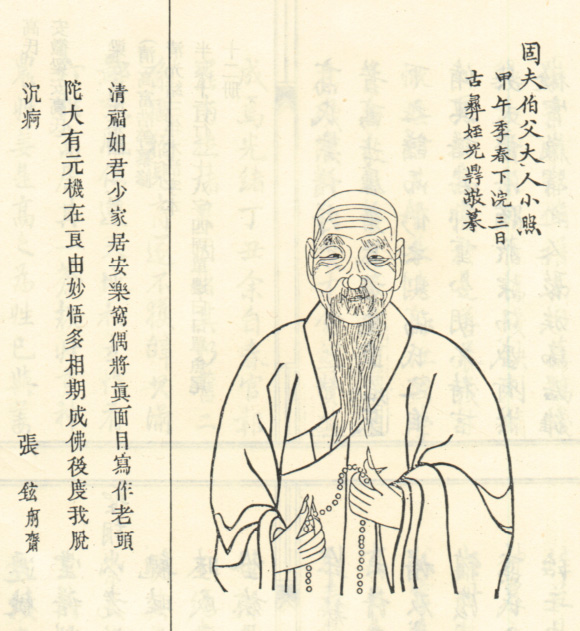 固夫伯父大人小照
甲午季春下浣三日
古彝姪光敬摹
清福如君少家居安樂窩偶將眞面目寫作老頭
陀大有元機在良由妙悟多相期成佛後度我脫
沉痾 張鉉齋